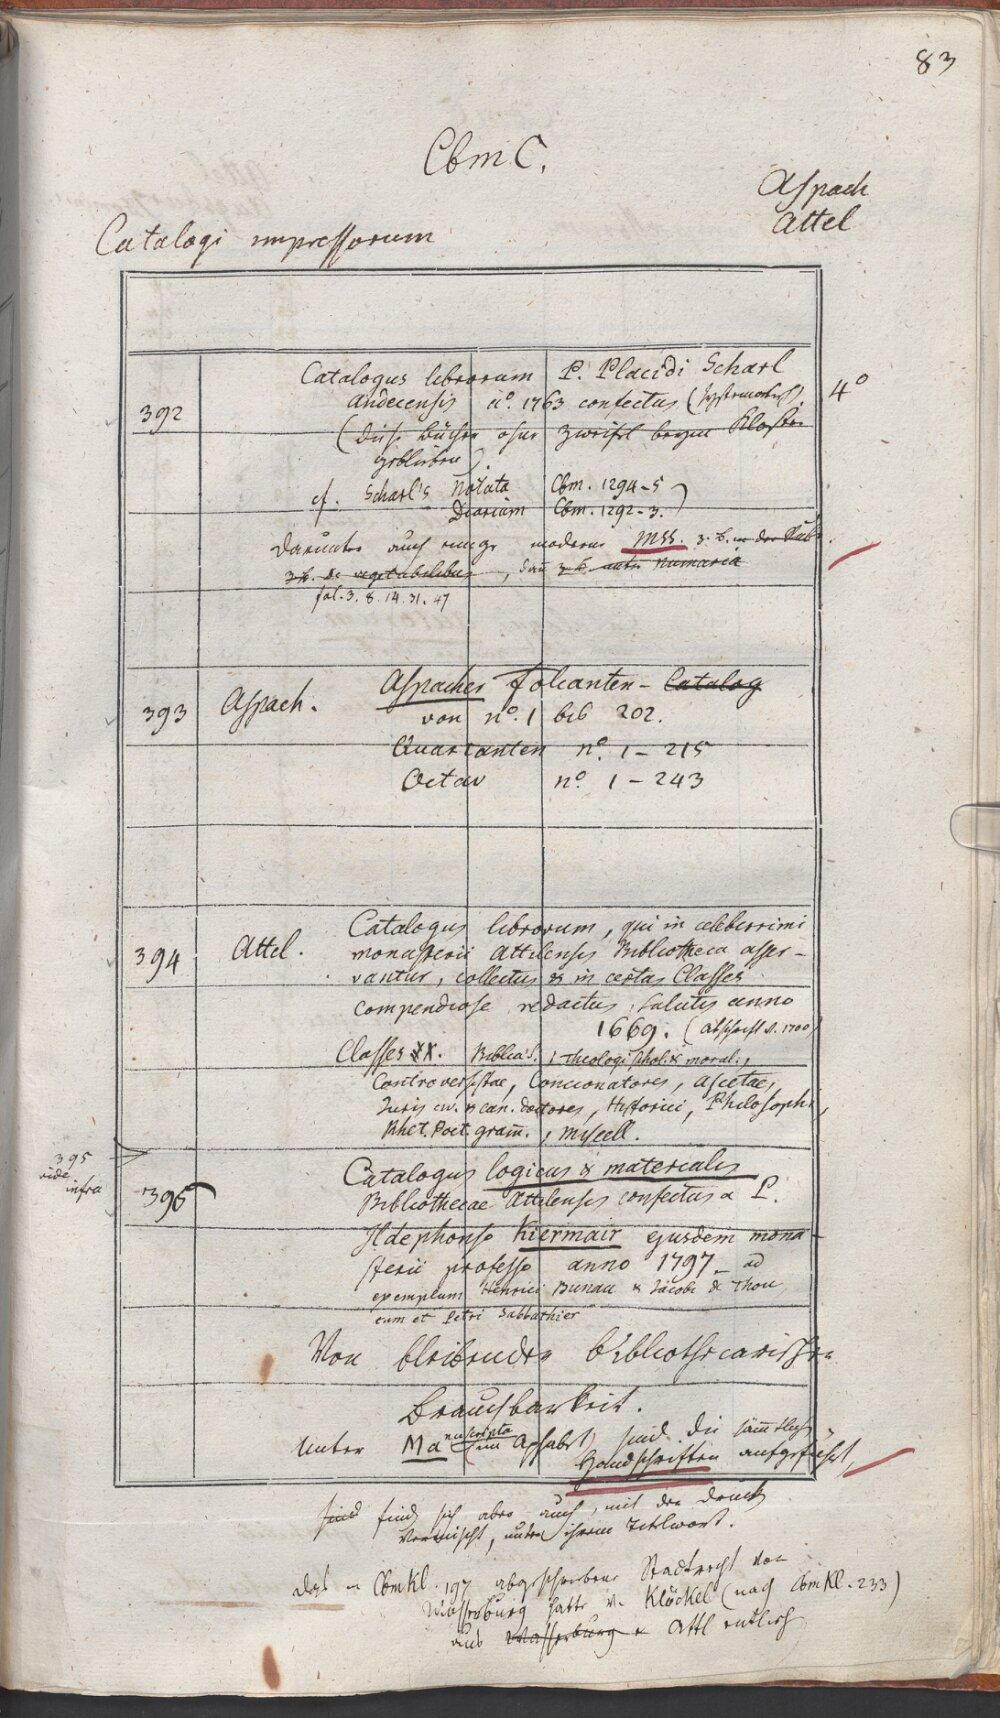 83
Cbm C.
Aspach
Attel
Catalogi impressorum
Catalogus librorum P. Placidi Scharl
4°
392
Andecensis aº. 1763 confectus (systematisch).
(diese Bücher ohne Zweifel beym Kloster
geblieben).
cf. Scharl's Notata Cbm. 1294-5)
Diarium Cbm. 1292-3.
Darunter auch einige moderne Mss. z. B. in der
z. B. de vegetabilibus, dann z. B. unter Numaria
fol. 3. 8. 14. 31. 47
393
Aspach.
Aspacher Folianten-Catalog
von nº. 1 bis 202.
Quartanten nº. 1 – 215
Octav nº. 1 – 243
394
Attel.
Catalogus librorum, qui in celeberrimi
monasterii Attilensis Bibliotheca asser-
vantur, collectus & in certas Classes
compendiose redactus, salutis anno
1669. (Abschrift v. 1700)
Classes XX. Biblia S., Theologi schol. & moral.,
Controversistae, Concionatores, Ascetae,
Juris civ. & can. doctores, Historici, Philosophi,
Rhet. Poet. gram̄., Miscell.
395
vide
infra
396
Catalogus logicus & materialis
Bibliothecae Attilensis confectus a P.
Ildephonso Kiermair ejusdem mona-
sterii professo anno 1797 – ad
exemplum Henrici Bunau & Jacobi de Thou,
cum et Petri Sabbathier
Von bleibender bibliothecarischer
Brauchbarkeit.
Unter Manuscripta (im Alphabet) sind die sämmtlichen
Handschriften aufgeführt,
sind finden sich aber auch, mit den Druck
vermischt, unter ihrem Titelwort.
Das in CbmKl. 197 abgeschriebene Stadtrecht von
Wasserburg hatte v. Klöckel (nach CbmKl. 233)
aus Wasserburg Attl entlehnt